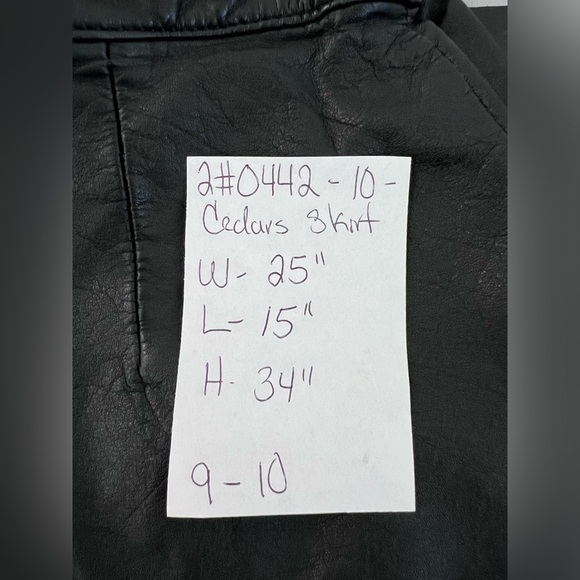 2#0442-10-
Cedars Skirt
W- 25"
L- 15"
H- 34"
9-10